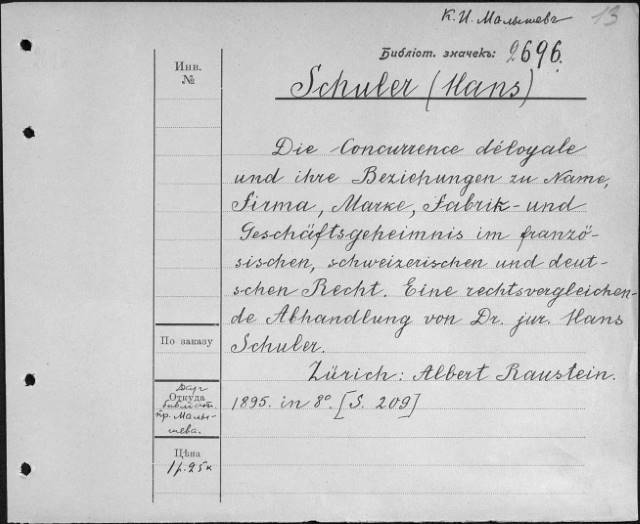 К. И. Малышевъ 13
Библіот. значекъ: 2696.
Инв.
№
Schuler (Hans)
Die Concurrence déloyale
und ihre Beziehungen zu Name,
Firma, Marke, Fabrik- und
Geschäftsgeheimnis im franzö-
sischen, schweizerischen und deut-
schen Recht. Eine rechtsvergleichen-
de Abhandlung von Dr. jur. Hans
Schuler.
Zürich: Albert Raustein.
1895. in 8º. [S. 209]
По заказу
Даръ
Откуда
библіот.
пр. Малы-
шева.
Цѣна
1 р. 25 к